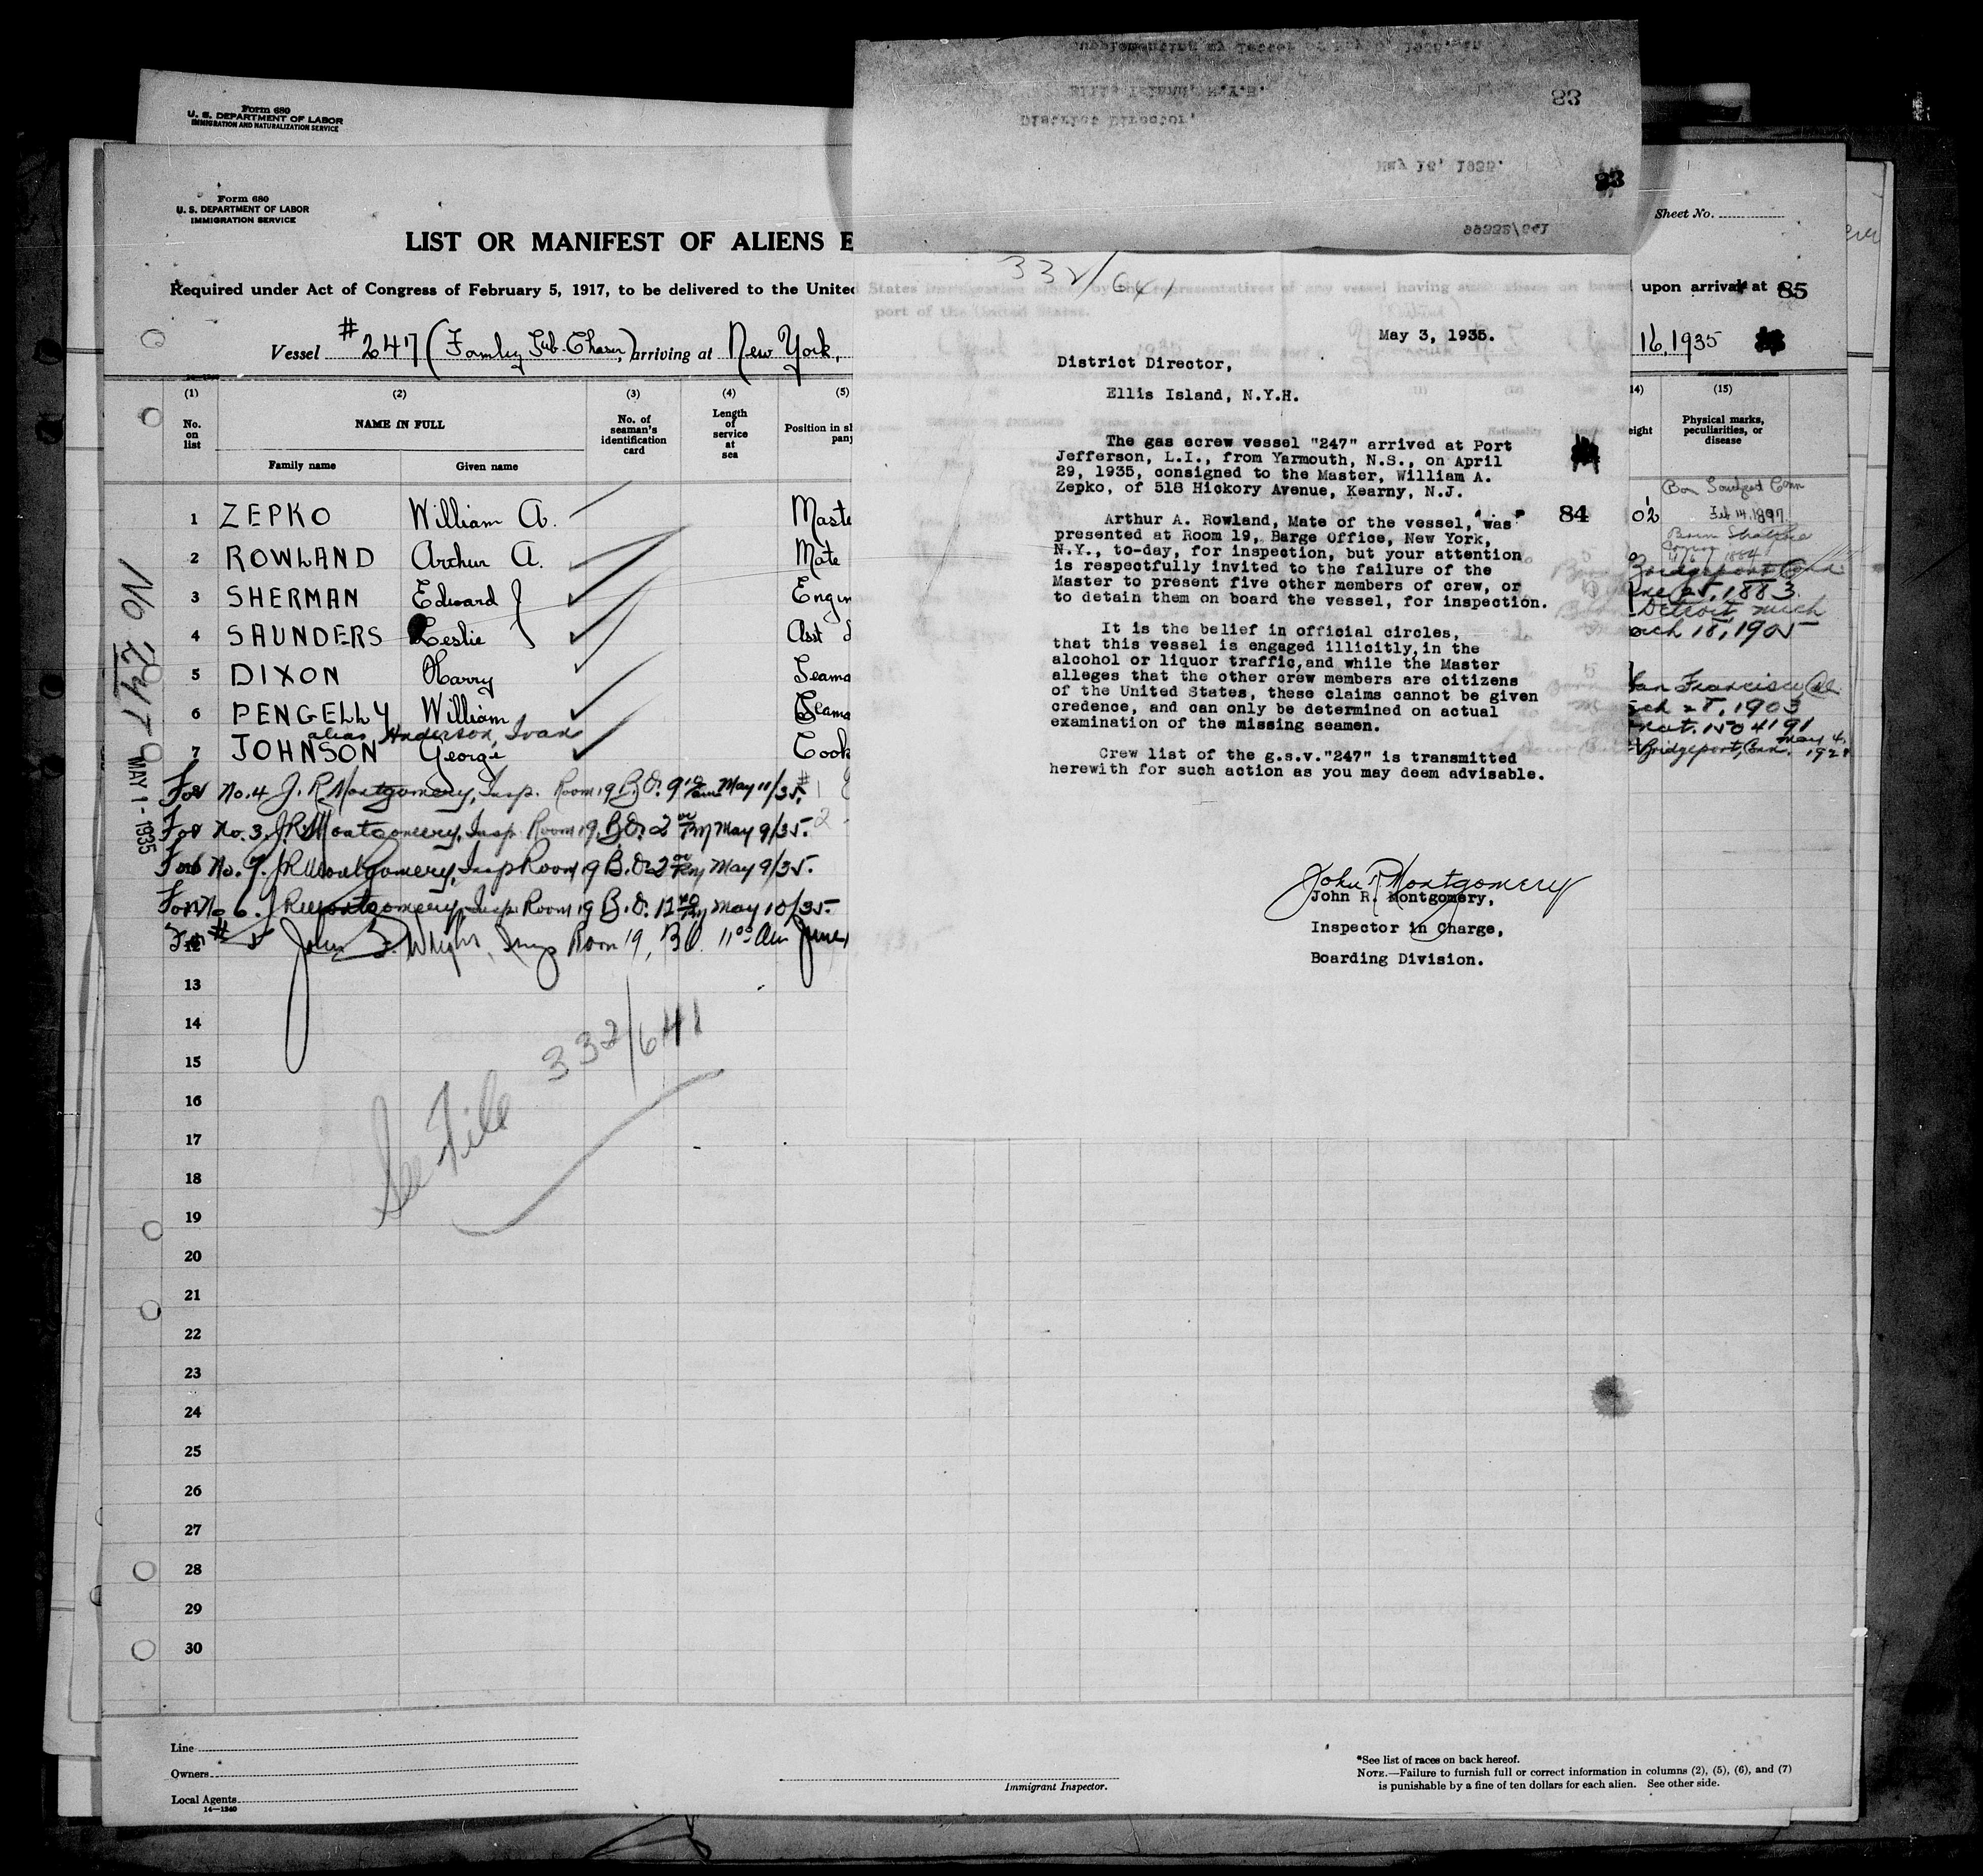 Form 680
U. S. DEPARTMENT OF LABOR
IMMIGRATION AND NATURALIZATION SERVICE
Form 680
U. S. DEPARTMENT OF LABOR
IMMIGRATION SERVICE
LIST OR MANIFEST OF ALIENS E
Sheet No.
Required under Act of Congress of February 5, 1917, to be delivered to the United
upon arrival at
85
Vessel #247 (Formley Sub-Chaser) arriving at New York,
16, 1935
(1) (2) (3) (4) (5)
No. on list
NAME IN FULL
Family name Given name
No. of seaman's identification card
Length of service at sea
Position in sh
pany
14)
eight
(15)
Physical marks, peculiarities, or disease
1 ZEPKO William A. Maste
2 ROWLAND Arthur A. Mate
3 SHERMAN Edward J Engin
4 SAUNDERS Leslie J Asst
5 DIXON Harry Seama
6 PENGELLY William Seama
alias Anderson, Ivan
7 JOHNSON George Cook
For No. 4 J. R. Montgomery, Insp. Room 19 B.O. 9 am May 11/35
For No. 3. J R Montgomery, Insp. Room 19, B.O. 2 PM May 9/35.
For No. 7. J R Montgomery, Insp Room 19 B.O. 2 PM May 9/35.
For No 6. J R Montgomery, Insp. Room 19 B.O. 12 PM May 10/35.
For # 5 John F. Wright, Insp Room 19, B.O. 11 00 Am June
No 247
MAY 1 - 1935
13
14
15
16
17
18
19
20
21
22
23
24
25
26
27
28
29
30
See File 332/641
Feb 14. 1897
1884
Bridgeport Conn
25, 1883
Detroit, Mich
rch 18, 1905
San Francisco Cal.
rch 28, 1903
nat. 1504191
Bridgeport, Conn. May 4, 1921
83
District Director,
May 16, 1935.
83
332/641
84
May 3, 1935.
District Director,
Ellis Island, N.Y.H.
The gas screw vessel "247" arrived at Port
Jefferson, L.I., from Yarmouth, N.S., on April
29, 1935, consigned to the Master, William A.
Zepko, of 518 Hickory Avenue, Kearny, N.J.
Arthur A. Rowland, Mate of the vessel, was
presented at Room 19, Barge Office, New York,
N.Y., to-day, for inspection, but your attention
is respectfully invited to the failure of the
Master to present five other members of crew, or
to detain them on board the vessel, for inspection.
It is the belief in official circles,
that this vessel is engaged illicitly, in the
alcohol or liquor traffic, and while the Master
alleges that the other crew members are citizens
of the United States, these claims cannot be given
credence, and can only be determined on actual
examination of the missing seamen.
Crew list of the g.s.v."247" is transmitted
herewith for such action as you may deem advisable.
John R Montgomery
John R. Montgomery,
Inspector in Charge,
Boarding Division.
Line
Owners
Local Agents
14—1240
Immigrant Inspector.
*See list of races on back hereof.
NOTE.—Failure to furnish full or correct information in columns (2), (5), (6), and (7)
is punishable by a fine of ten dollars for each alien. See other side.